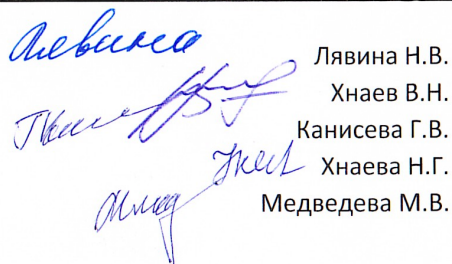 Лявина Лявина Н.В.
Хнаев В.Н.
Канисева Г.В.
Хнаева Н.Г.
Медведева М.В.